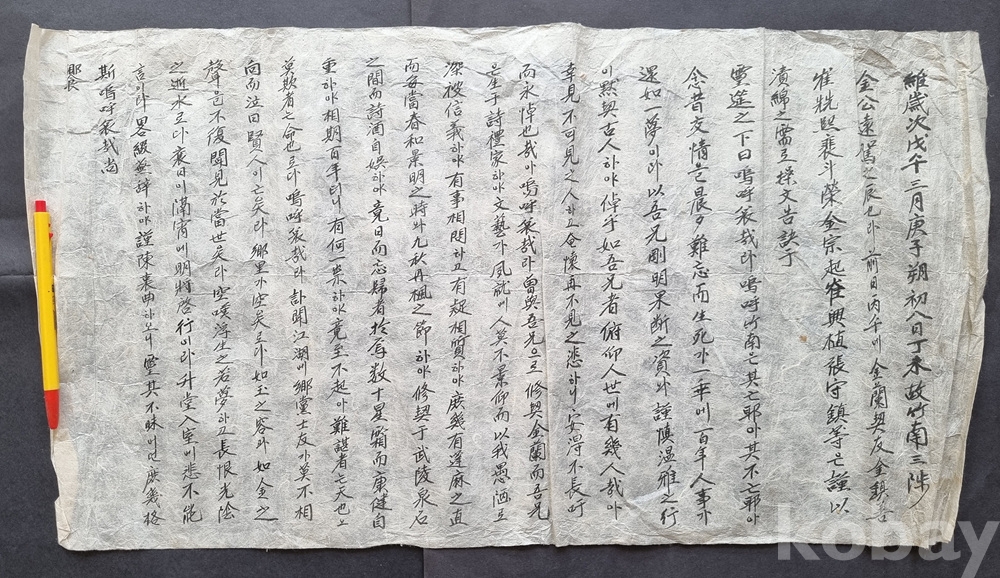 維歲次戊午三月庚子朔初八日丁未故竹南三陟
金公遠駕之辰也라前日丙午에金蘭契友金鎭
崔 熙裵斗榮金宗起崔興植張守鎭等은謹以
漬綿之需로操文告訣于
靈筵之下曰嗚呼哀哉라嗚呼竹南은其亡耶아其不亡耶아
念昔交情은晨夕難忘而生死가一 에百年人事가
還如一夢이라以吾兄剛明果斷之資와謹愼溫雅之行
이黙契古人하야倬乎如吾兄者俯仰人世에有幾人哉아
幸見不可見之人하고今懷再不見之悲하니安得不長吁
而永悼也哉아嗚呼哀哉라曾與吾兄으로修契金蘭而吾兄
은生于詩禮家하야文藝가夙就에人莫不景仰而以我愚 로
深被信義하야有事相問하고有疑相質하야庶幾有蓬麻之直
而每當春和景明之時와九秋丹楓之節하야修契于武陵泉石
之間而詩酒自娛하야竟日而忘歸者於焉數十星霜而康健自
重하야相期百年터니有何一祟하야竟至不起아難諶者 天也오
莫欺者之命也로다嗚呼哀哉라訃聞江湖에鄕黨士友가莫不相
向而泣曰賢人이亡矣라鄕里가空矣로다如玉之容과如金之
聲을不復聞見於當世矣라空嘆浮生之若夢하고長恨光陰
之逝水로다哀日이滿宵에明將啓行이라升堂入室에悲不能
言이라畧綴蕪辭하야謹陳衷曲하오니靈其不昧어던庶幾格
斯嗚呼哀哉尙
饗
kobay